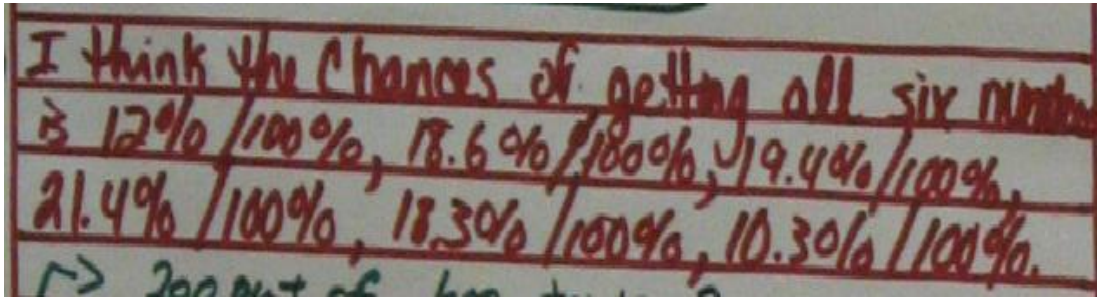 I think the Chances of getting all six
is 12%/100%, 18.6%/100%, 19.4%/100%,
21.4%/100%, 18.3%/100%, 10.3%/100%.
200 out of